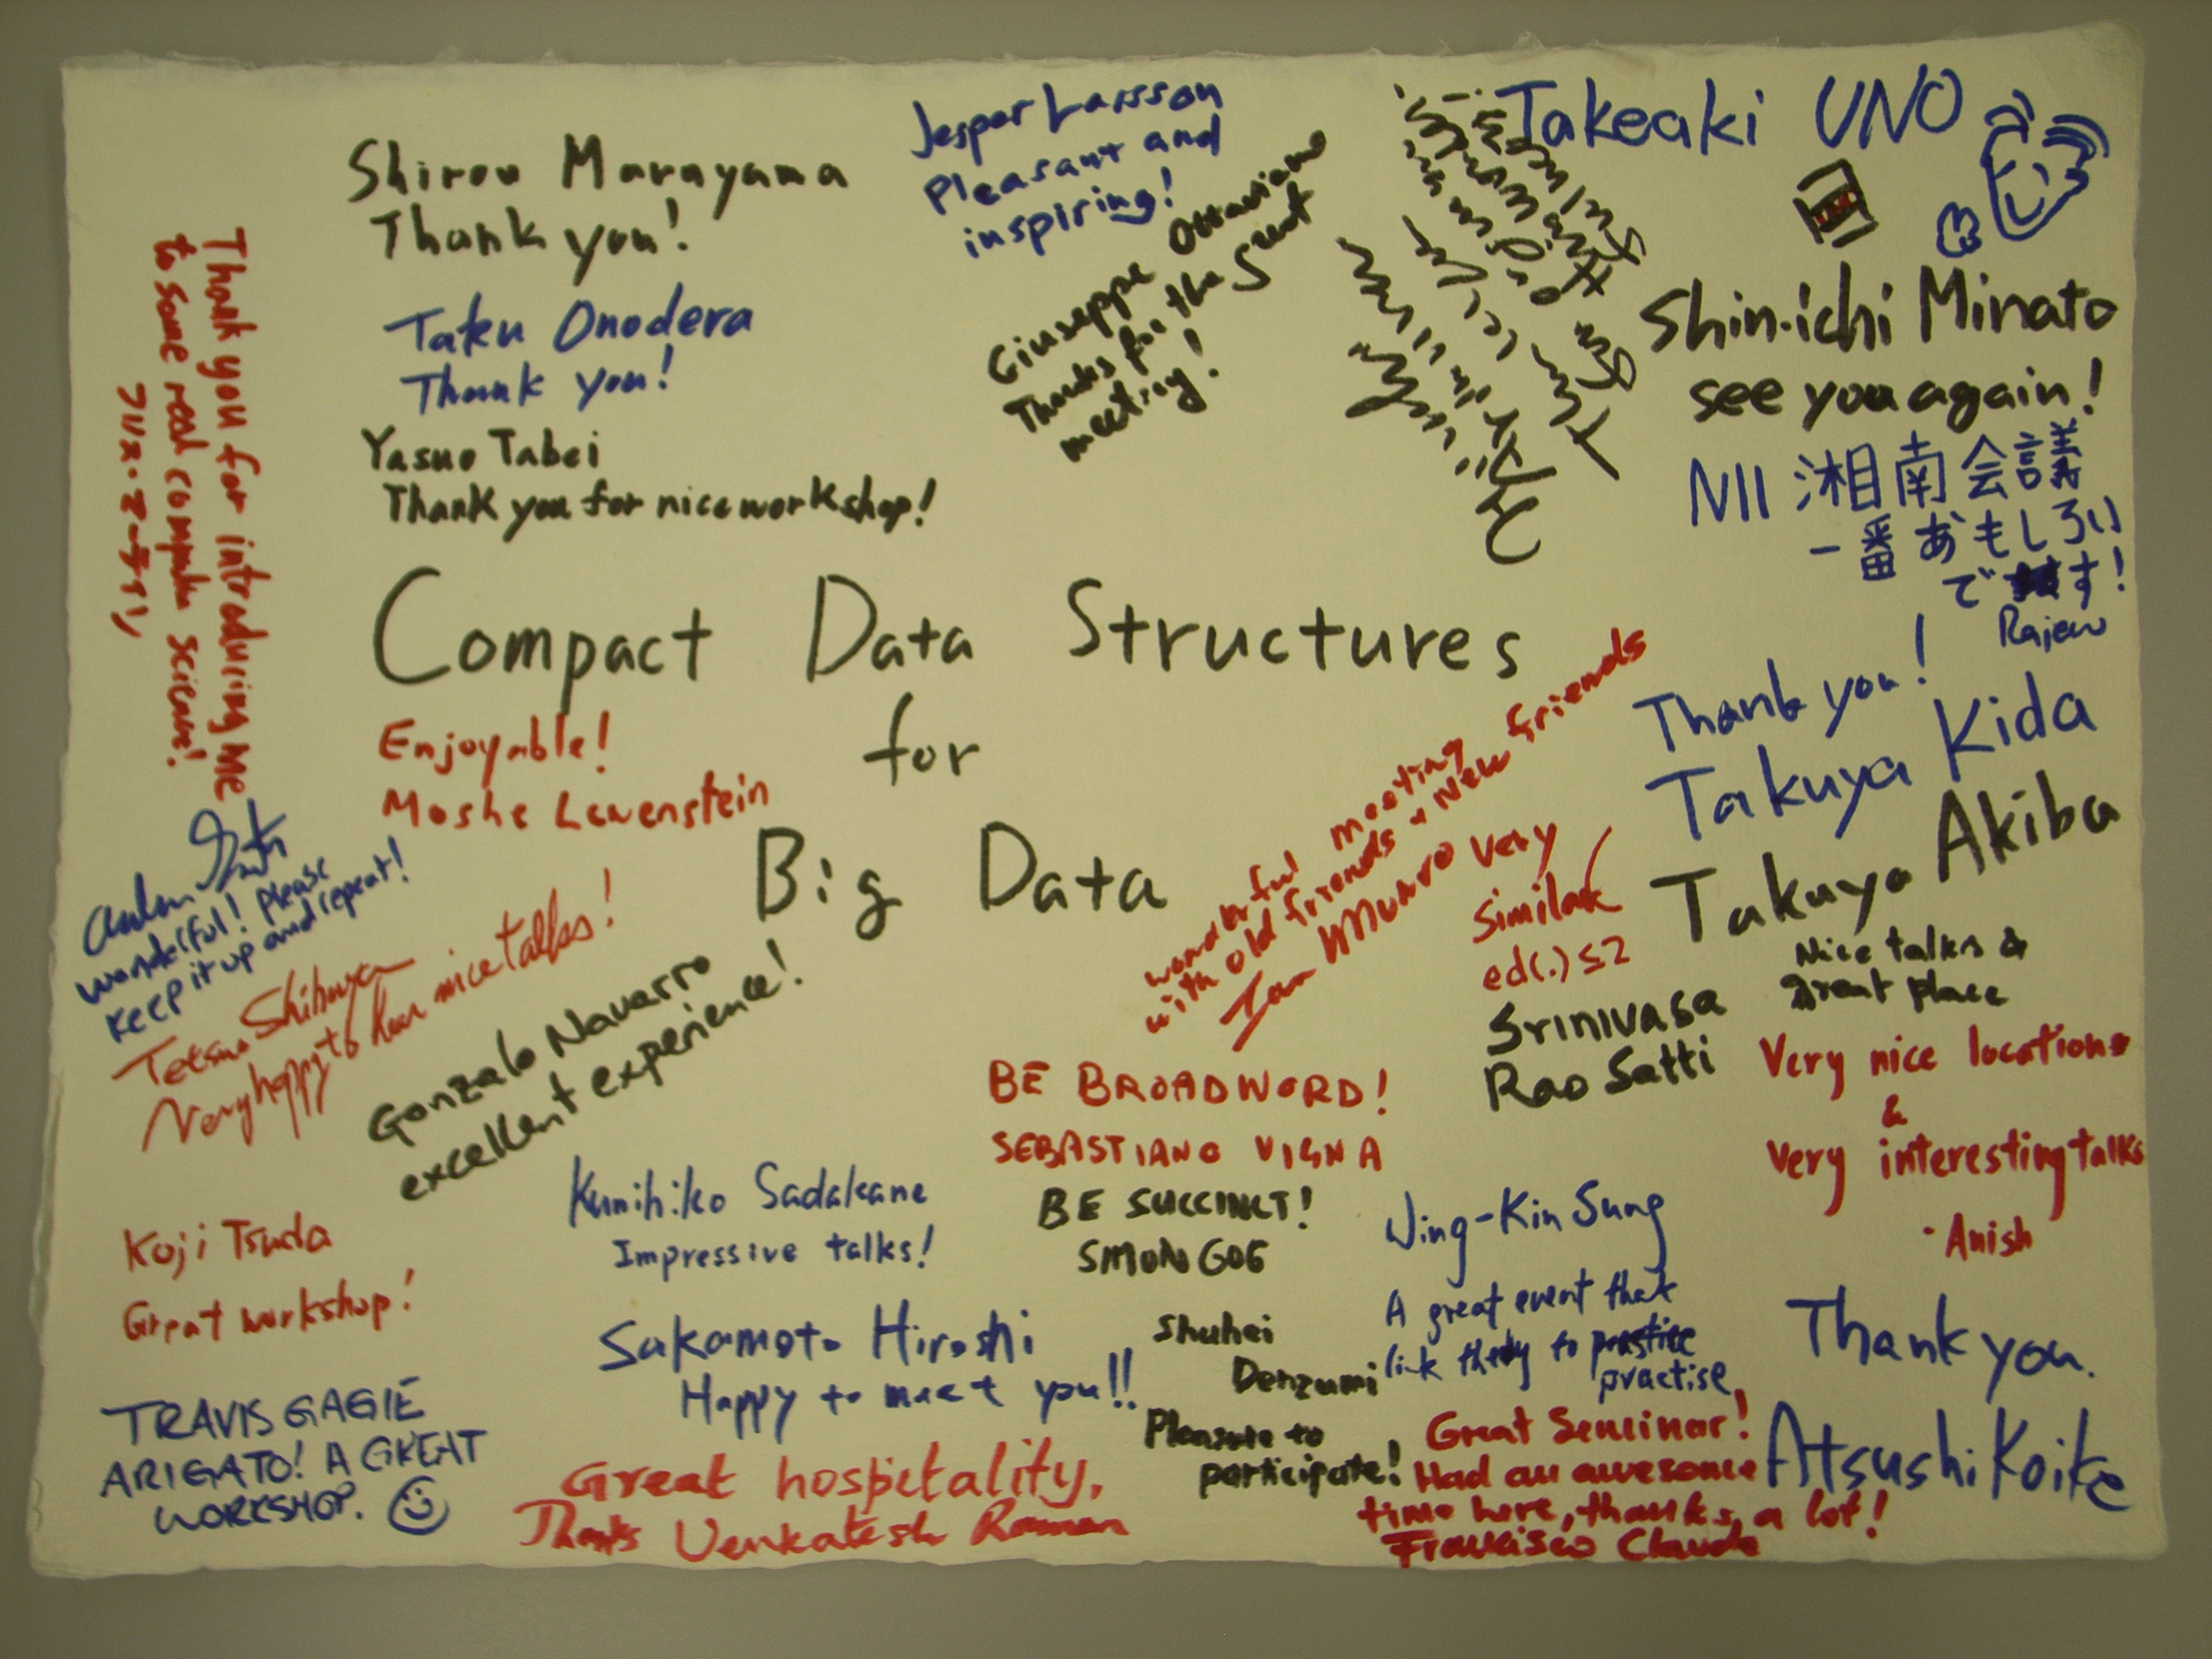 Shirou Maruyama
Thank you!
Taku Onodera
Thank you!
Yasuo Tabei
Thank you for nice workshop!
Jesper Larsson
Pleasant and
inspiring!
Giuseppe Ottaviano
Thanks for the great
meeting!
Takeaki UNO
Shin-ichi Minato
see you again!
NII 湘南会議
一番おもしろい
です!
Rajeev
Thank you for introducing me
to some real compute science!
Compact Data Structures
for
Big Data
Enjoyable!
Moshe Lewenstein
wonderful! Please
keep it up and repeat!
Tetsuo Shibuya
Very happy to hear nice talks!
Gonzalo Navarro
excellent experience!
wonderful meeting
with old friends & New friends
Ian Munro
Very
Similar
ed(.)≤2
Thank you!
Takuya Kida
Takuya Akiba
Nice talks &
great place
Srinivasa
Rao Satti
Very nice location
&
Very interesting talks
- Anish
BE BROADWORD!
SEBASTIANO VIGNA
BE SUCCINCT!
SIMON GOG
Kunihiko Sadakane
Impressive talks!
Koji Tsuda
Great workshop!
Sakamoto Hiroshi
Happy to meet you!!
Shuhei
Denzumi
Pleasure to
participate!
Wing-Kin Sung
A great event that
link theory to practice
practise
Thank you.
Atsushi Koike
TRAVIS GAGIE
ARIGATO! A GREAT
WORKSHOP.
Great hospitality,
Thanks Venkatesh Raman
Great Seminar!
Had an awesome
time here, thanks a lot!
Francisco Claude